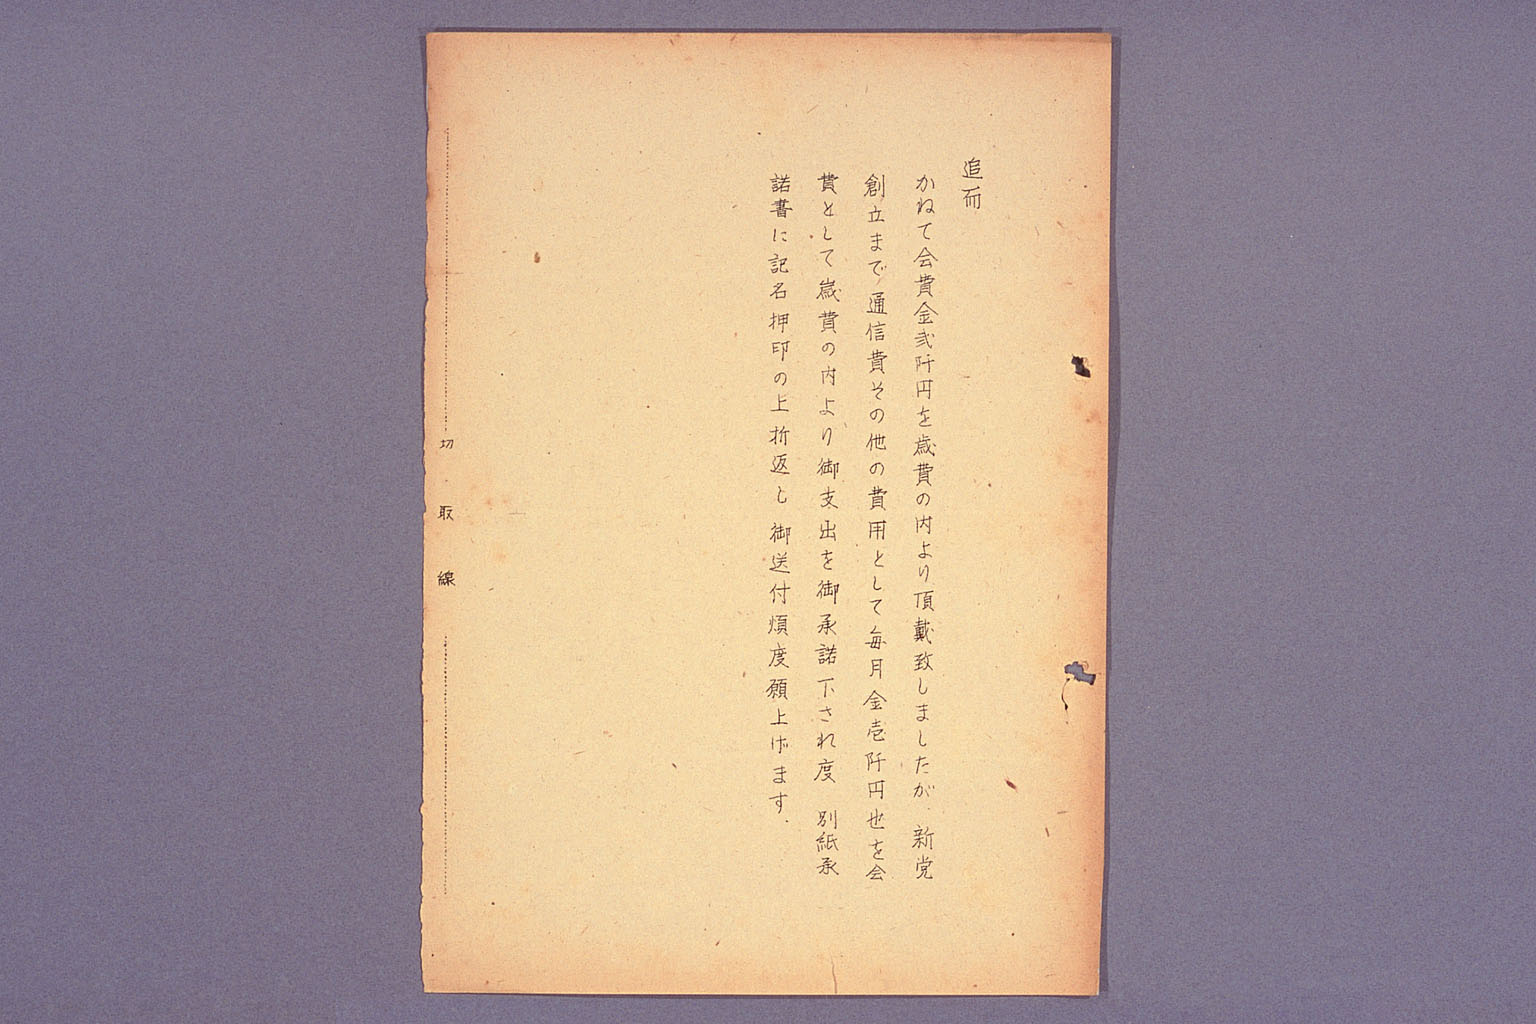 追而
かねて会費金弐阡円を歳費の内より頂戴致しましたが、新党
創立まで通信費その他の費用として毎月金壱阡円也を会
費として歳費の内より御支出を御承諾下され度 別紙承
諾書に記名押印の上折返し御送付煩度願上げます.
切取線